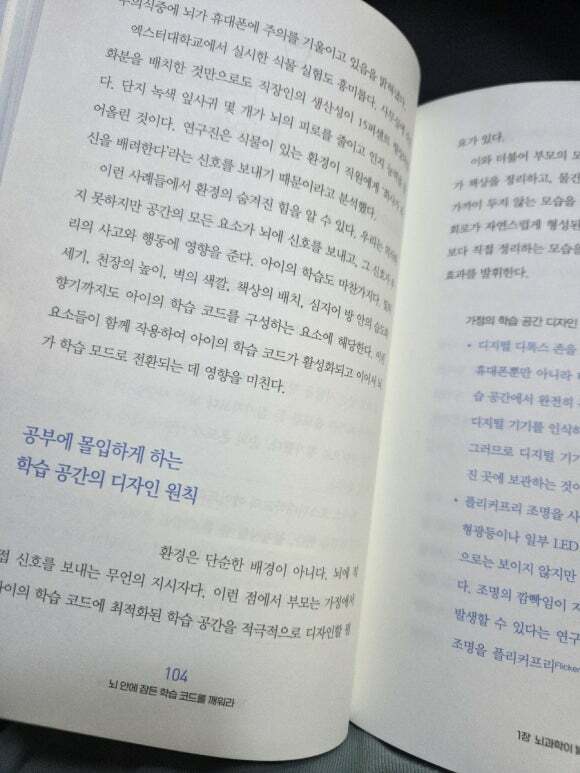 무의식중에 뇌가 휴대폰에 주의를 기울이고 있음을 밝혀냈다.
엑스터대학교에서 실시한 식물 실험도 흥미롭다. 사무실에
화분을 배치한 것만으로도 직장인의 생산성이 15퍼센트
다. 단지 녹색 잎사귀 몇 개가 뇌의 피로를 줄이고 인지
어올린 것이다. 연구진은 식물이 있는 환경이 직원에게
신을 배려한다'라는 신호를 보내기 때문이라고 분석했다.
이런 사례들에서 환경의 숨겨진 힘을 알 수 있다. 우리는
지 못하지만 공간의 모든 요소가 뇌에 신호를 보내고, 그 신호가
리의 사고와 행동에 영향을 준다. 아이의 학습도 마찬가지다.
세기, 천장의 높이, 벽의 색깔, 책상의 배치, 심지어 방 안의 습도와
향기까지도 아이의 학습 코드를 구성하는 요소에 해당한다. 이런
요소들이 함께 작용하여 아이의 학습 코드가 활성화되고 이어서 뇌
가 학습 모드로 전환되는 데 영향을 미친다.
공부에 몰입하게 하는
학습 공간의 디자인 원칙
환경은 단순한 배경이 아니다. 뇌에 직
접 신호를 보내는 무언의 지시자다. 이런 점에서 부모는 가정에서
아이의 학습 코드에 최적화된 학습 공간을 적극적으로 디자인할 필
104
뇌 안에 잠든 학습 코드를 깨워라
효가 있다.
이와 더불어 부모의 모
가 책상을 정리하고, 물건
가까이 두지 않는 모습을
회로가 자연스럽게 형성된
보다 직접 정리하는 모습을
효과를 발휘한다.
가정의 학습 공간 디자인
• 디지털 디톡스 존을
휴대폰뿐만 아니라
습 공간에서 완전히
디지털 기기를 인식하
그러므로 디지털 기기
진 곳에 보관하는 것이
• 플리커프리 조명을 사
형광등이나 일부 LED
으로는 보이지 않지만
다. 조명의 깜빡임이
발생할 수 있다는 연구
조명을 플리커프리Flicker
1장 뇌과학이